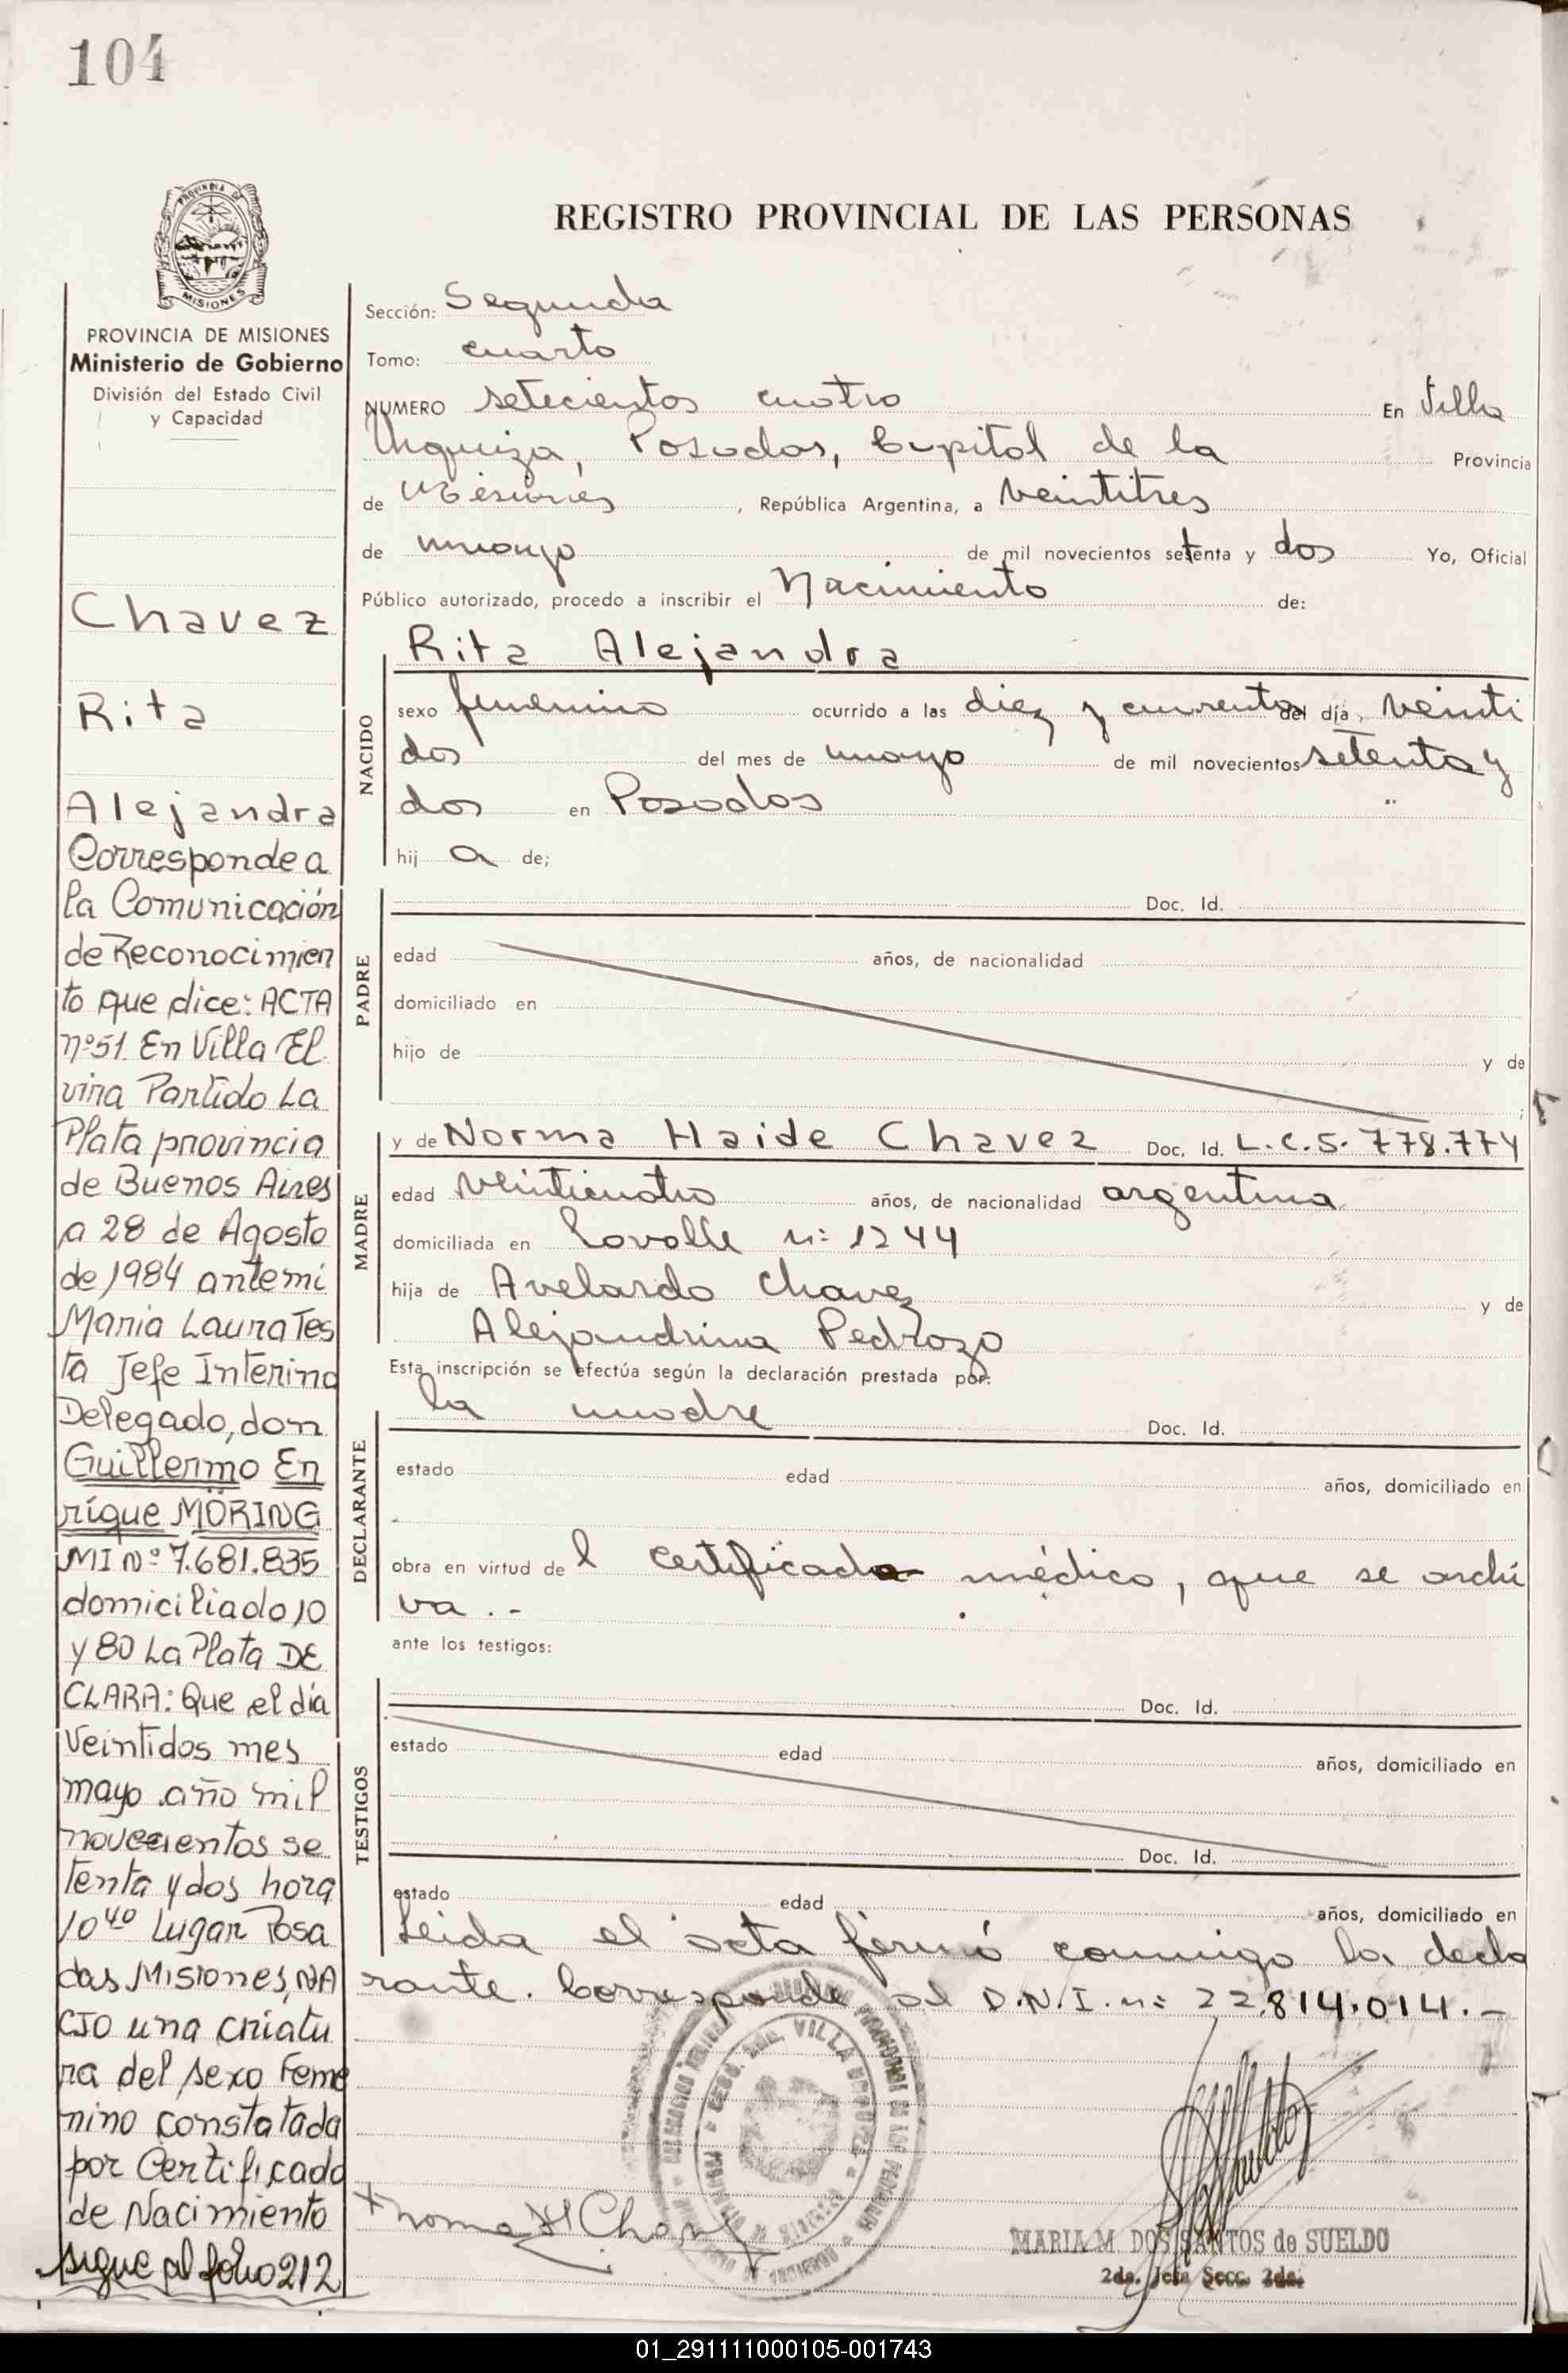 104
REGISTRO PROVINCIAL DE LAS PERSONAS
PROVINCIA DE
MISIONES
PROVINCIA DE MISIONES
Ministerio de Gobierno
División del Estado Civil
y Capacidad
Chavez
Rita
Alejandra
Corresponde a
la Comunicación
de Reconocimien
to que dice: ACTA
nº 51. En Villa El
vira Partido La
Plata provincia
de Buenos Aires
a 28 de Agosto
de 1984 ante mí
Maria Laura Tes
ta Jefe Interino
Delegado, don
Guillermo En
rique MÖRING
MI Nº 7.681.835
domiciliado 10
y 80 La Plata DE
CLARA: Que el día
Veintidos mes
mayo año mil
novecientos se
tenta y dos hora
10 40 Lugar Posa
das, Misiones, NA
CIO una criatu
ra del sexo Feme
nino constatada
por Certificado
de Nacimiento
sigue al folio 212
Sección: Segunda
Tomo: cuarto
NUMERO setecientos cuatro En Villa
Urquiza, Posadas, Capital de la Provincia
de Misiones, República Argentina, a veintitres
de mayo de mil novecientos setenta y dos Yo, Oficial
Público autorizado, procedo a inscribir el Nacimiento de:
NACIDO
Rita Alejandra
sexo femenino ocurrido a las diez y cuarenta del día, veinti
dos del mes de mayo de mil novecientos setenta y
dos en Posadas
hij a de;
PADRE
Doc. Id.
edad años, de nacionalidad
domiciliado en
hijo de y de
;
MADRE
y de Norma Haide Chavez Doc. Id. L.C.5.778.774
edad veinticuatro años, de nacionalidad argentina
domiciliada en Lavalle n: 1244
hija de Avelardo Chavez y de
Alejandrina Pedrozo
Esta inscripción se efectúa según la declaración prestada por:
DECLARANTE
la madre Doc. Id.
estado edad años, domiciliado en
obra en virtud de l certificado médico, que se archi
va . -
ante los testigos:
TESTIGOS
Doc. Id.
estado edad años, domiciliado en
Doc. Id.
estado edad años, domiciliado en
Leida el acta firmó conmigo la decla
rante. Corresponde al D.N.I. n: 22.814.014. -
VILLA URQUIZA
Norma H Chavez
MARIA M. DOS SANTOS de SUELDO
2da. Jefa Secc. 2da.
01_291111000105-001743